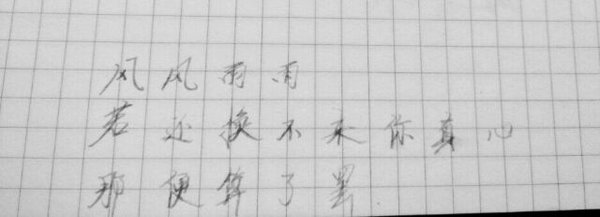 风风雨雨
若还换不来你真心
那便算了罢.